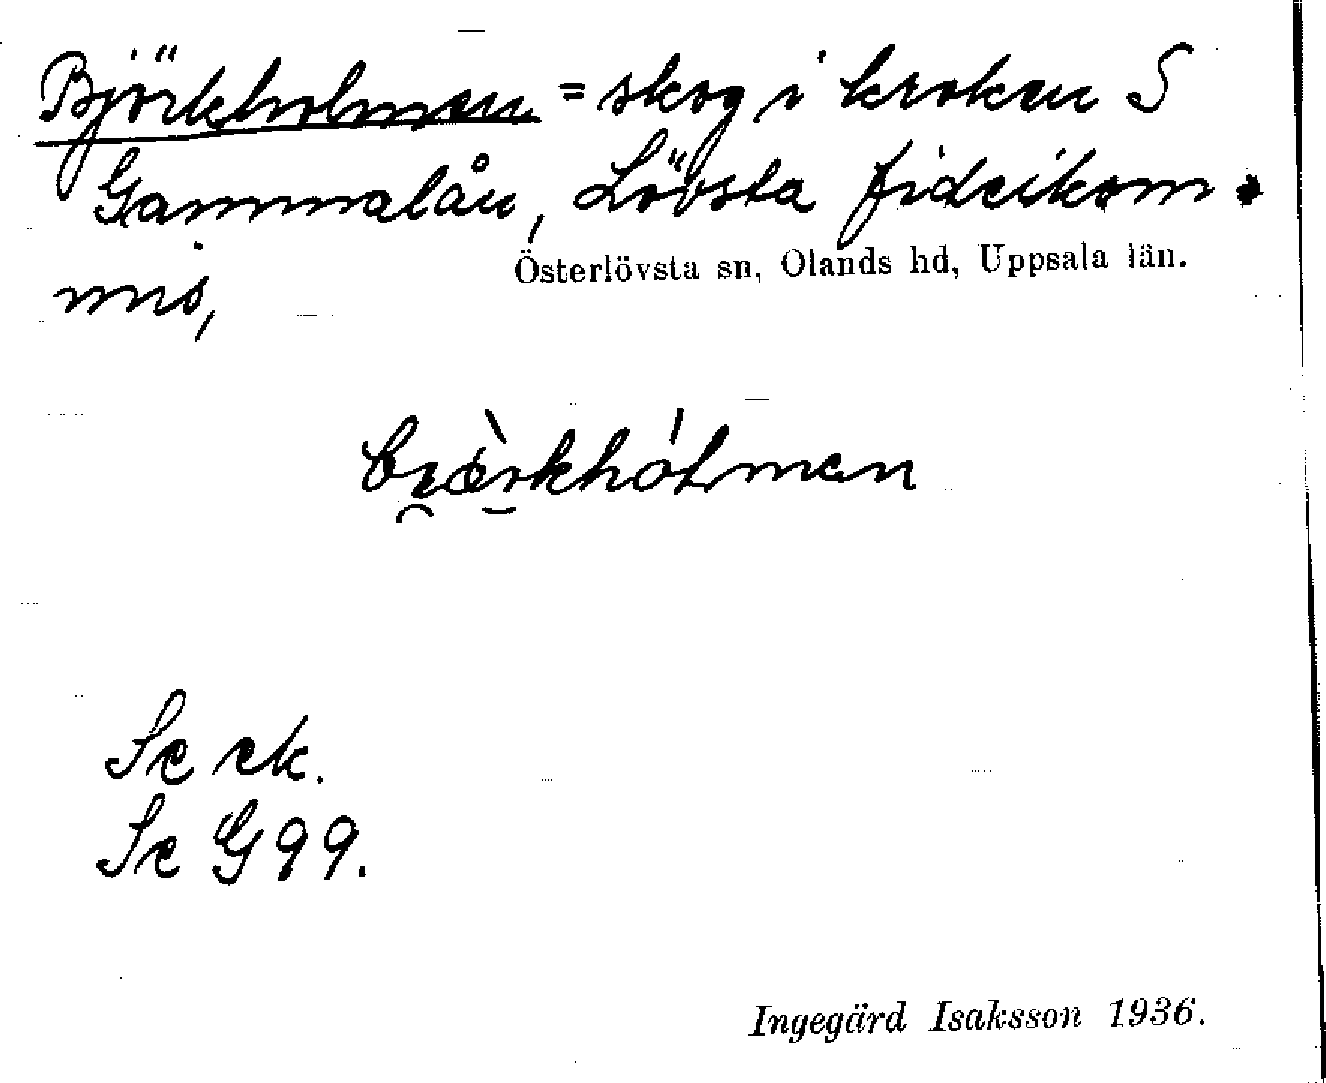 Björkholmen = skog i kroken S
Gammalån, Lövsta fideikom-
miss,
Österlövsta sn, Olands hd, Uppsala län.
bi̯æ̀rkhól̥men
Se ek.
Se G 99.
Ingegärd Isaksson 1936.